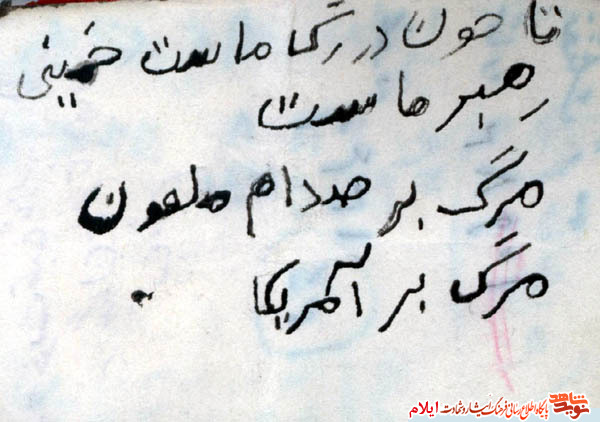 تا خون در رگ ما ست خمینی
رهبر ماست
مرگ بر صدام ملعون
مرگ بر آمریکا
نوید شاهد
پایگاه اطلاع رسانی فرهنگ ایثار و شهادت ایلام